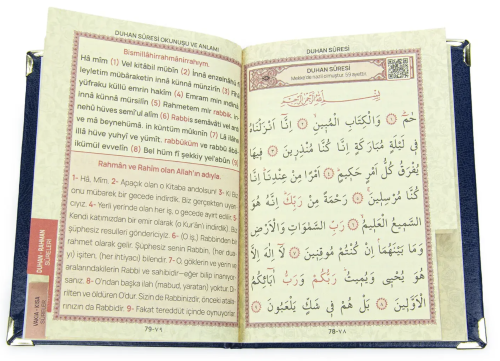 DUHAN SÛRESİ OKUNUŞU VE ANLAMI
Bismillâhirrahmânirrahym.
Hâ mîm (1) Vel kitâbil mübîn (2) İnnâ enzelnâhü
leyletim mübâraketin innâ künnâ münzirîn (3) Fîhâ
yüfraku küllü emrin hakîm (4) Emram min ındinâ
innâ künnâ mürsilîn (5) Rahmetem mir rabbik, in
nehû hüves semî'ul alîm (6) Rabbis semâvâti vel ard
ve mâ beynehümâ, in küntüm mûkınîn (7) Lâ ilâhe
illâ hüve yuhyî ve yümît, rabbüküm ve rabbü âbâ
ikümül evvelîn (8) Bel hüm fî şekkiy yel'abûn (9)
Rahmân ve Rahîm olan Allah'ın adıyla.
1- Hâ, Mîm. 2- Apaçık olan o Kitaba andolsun! 3- Ki Biz
onu mübarek bir gecede indirdik. Biz gerçekten uyarı-
cıyız. 4- Yerli yerinde olan her iş, o gecede ayırt edilir. 5-
Kendi katımızdan bir emir olarak (o Kur'ânı indirdik). Biz
şüphesiz resulleri göndericiyiz. 6- (O iş,) Rabbinden bir
rahmet olarak gelir. Şüphesiz senin Rabbin, (her dua-
yı) işiten, (her ihtiyacı) bilendir. 7- O göklerin ve yerin ve
aralarındakilerin Rabbi ve sahibidir-eğer bilip inanıyor-
sanız. 8- O'ndan başka ilah (mabud, yaratan) yoktur. Di-
rilten ve öldüren O'dur. Sizin de Rabbinizdir, önceki atala-
rınızın da Rabbidir. 9- Fakat tereddüt içinde oynuyorlar.
79-٧٩
DUHAN - RAHMAN
SÛRELERİ
VAKIA - KISA
SÛRELER
DUHAN SÛRESİ
DUHAN SÛRESİ
Mekke'de nazil olmuştur. 59 ayettir.
حٰمٓ ﴿١﴾ وَالْكِتَابِ الْمُبِينِ ﴿٢﴾ اِنَّٓا اَنْزَلْنَاهُ
فِي لَيْلَةٍ مُبَارَكَةٍ اِنَّا كُنَّا مُنْذِرِينَ ﴿٣﴾ فِيهَا
يُفْرَقُ كُلُّ اَمْرٍ حَكِيمٍ ﴿٤﴾ اَمْرًا مِنْ عِنْدِنَا اِنَّا
كُنَّا مُرْسِلِينَ ﴿٥﴾ رَحْمَةً مِنْ رَبِّكَ اِنَّهُ هُوَ
السَّمِيعُ الْعَلِيمُ ﴿٦﴾ رَبِّ السَّمٰوَاتِ وَالْاَرْضِ
وَمَا بَيْنَهُمَا اِنْ كُنْتُمْ مُوقِنِينَ ﴿٧﴾ لَٓا اِلٰهَ اِلَّا
هُوَ يُحْيِي وَيُمِيتُ رَبُّكُمْ وَرَبُّ اٰبَٓائِكُمُ
الْاَوَّلِينَ ﴿٨﴾ بَلْ هُمْ فِي شَكٍّ يَلْعَبُونَ ﴿٩﴾
78-٧٨